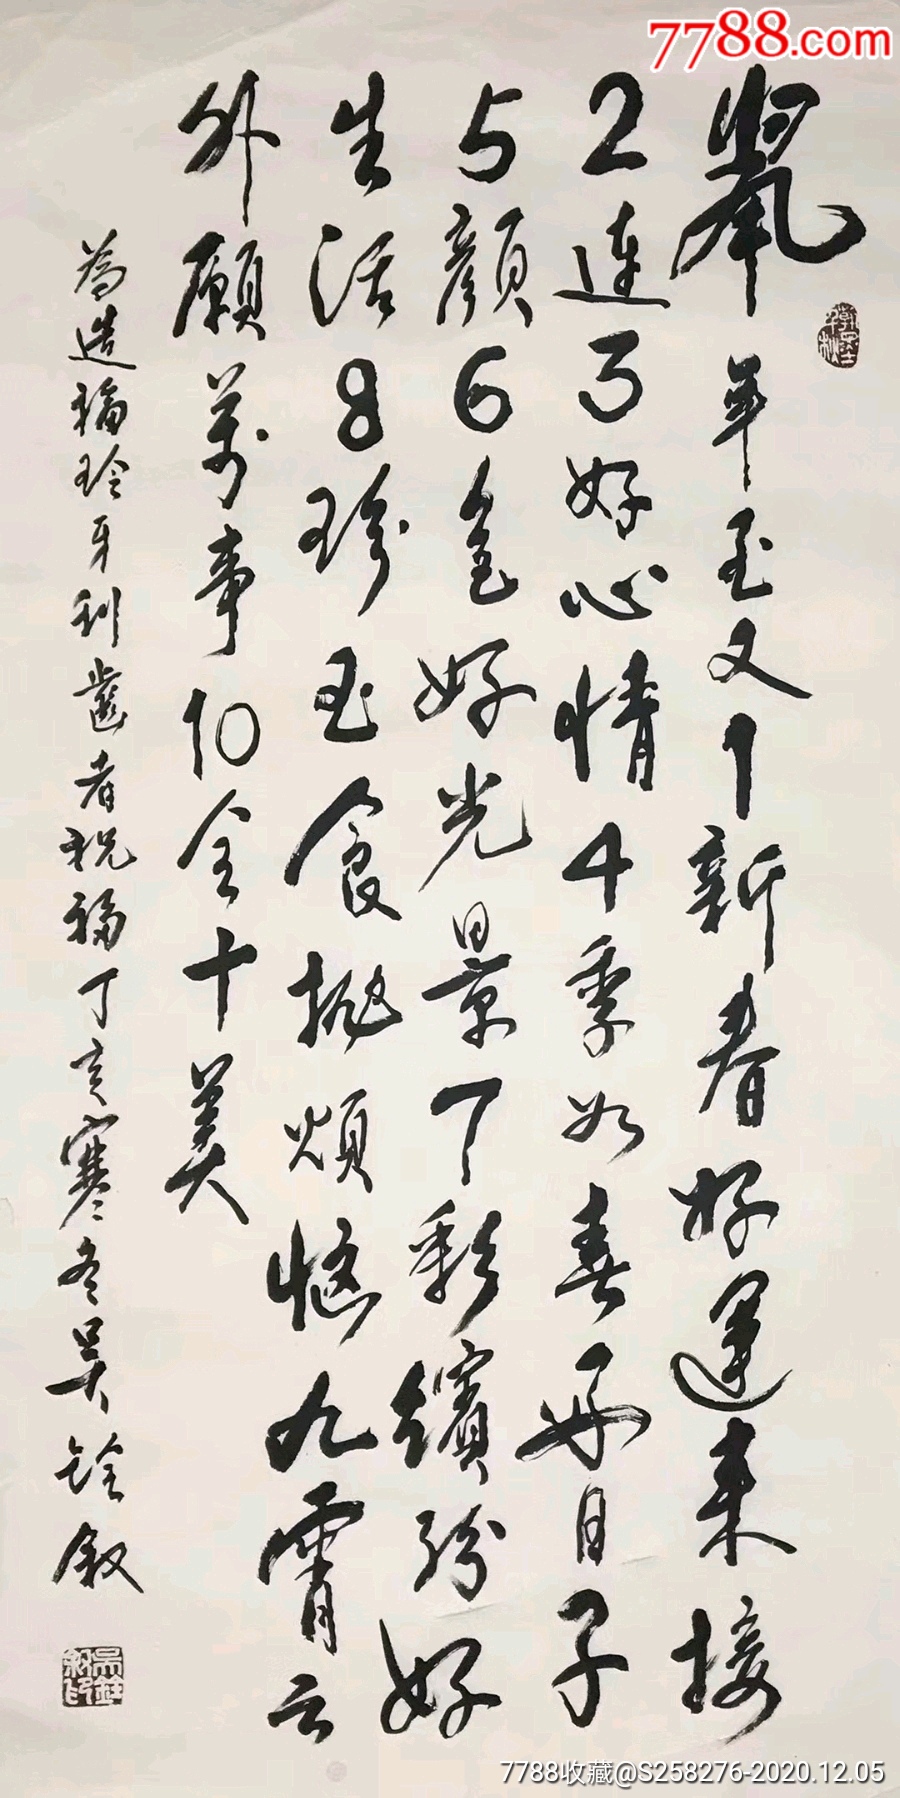 7788.com
年至又1新春好運来接
2连3好心情4季如春好日子
5颜6色好光景7彩繽纷好
生活8珍玉食抛煩惱九霄云
外願萬事10全十美
為造福玲牙利齒者祝福丁亥寒冬吴铨叙
吴铨叙印
7788收藏@S258276-2020.12.05